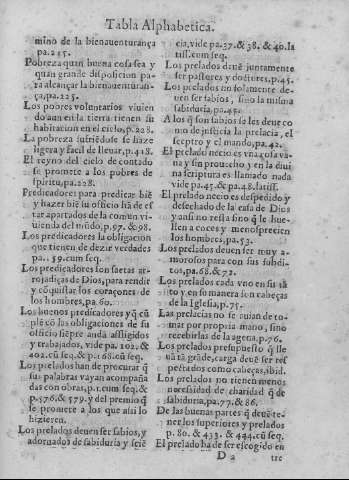 Tabla Alphabetica.
mino de la bienauenturança
pa.215.
Pobreza quan buena cosa sea y
quan grande disposicion pa-
ra alcançar la bienauenturan-
ça, pa.225.
Los pobres voluntarios viuien
do aun en la tierra tienen su
habitacion en el cielo, p.228.
La pobreza sufriẽdose se haze
ligera y facil de lleuar, p.428.
El reyno del cielo de contado
se promete a los pobres de
spiritu, pa.228.
Predicadores para predicar biẽ
y hazer biẽ su officio hã de es
tar apartados de la comun vi-
uienda del mũdo, p.97.&98.
Los predicadores la obligacion
que tienen de dezir verdades
pa. 59.cum seq.
Los predicadores son saetas ar-
rojadiças de Dios, para rendir
y cõquistar los coraçones de
los hombres, pa.60.
Los buenos predicadores y q̃ cũ
plẽ cõ las obligaciones de su
officio siẽpre andã affligidos
y trabajados, vide pa.102.&
402.cũ seq.& p.168.cũ seq.
Los prelados han de procurar q̃
sus palabras vayan acompaña
das con obras, p.1.cum seq.&
p.576.& 579. y del premio q̃
se promete a los que assi lo
hizieren.
Los prelados deuen ser sabios, y
adornados de sabiduria y sciẽ
cia, vide pa.37.& 38.& 40.la
tiss.cum seq.
Los prelados deuẽ juntamente
ser pastores y doctores, p.45.
Los prelados no solamente de-
uen ser sabios, sino la misma
sabiduria, pa.45.
A los q̃ son sabios se les deue co
mo de justicia la prelacia, el
sceptro y el mando, pa.42.
El prelado necio es vna cosa va-
na y sin prouecho y en la diui
na scriptura es llamado nada
vide pa.45.& pa.48.latiss.
El prelado necio es despedido y
desechado de la casa de Dios
y ansi no resta sino q̃ le hue-
llen a coces y menosprecien
los hombres, pa.53.
Los prelados deuen ser muy a-
morosos para con sus subdi-
tos, pa.68.& 72.
Los prelados cada vno en su sã
to y en so manera son cabeças
de la Iglesia, p.75.
Las prelacias no se auian de to-
mar por propria mano, sino
recebirlas de la agena, p.76.
Los prelados presupuesto q̃ lle
uã tã grãde, carga deuẽ ser res
pectados como cabeças, ibid.
Los prelados no tienen menos
necessidad de charidad q̃ de
sabiduria, pa.77.& 86.
De las buenas partes q̃ deuẽ te-
ner los superiores y prelados
p. 80.& 433.& 434.cũ seq.
El prelado ha de ser escogido en
tre